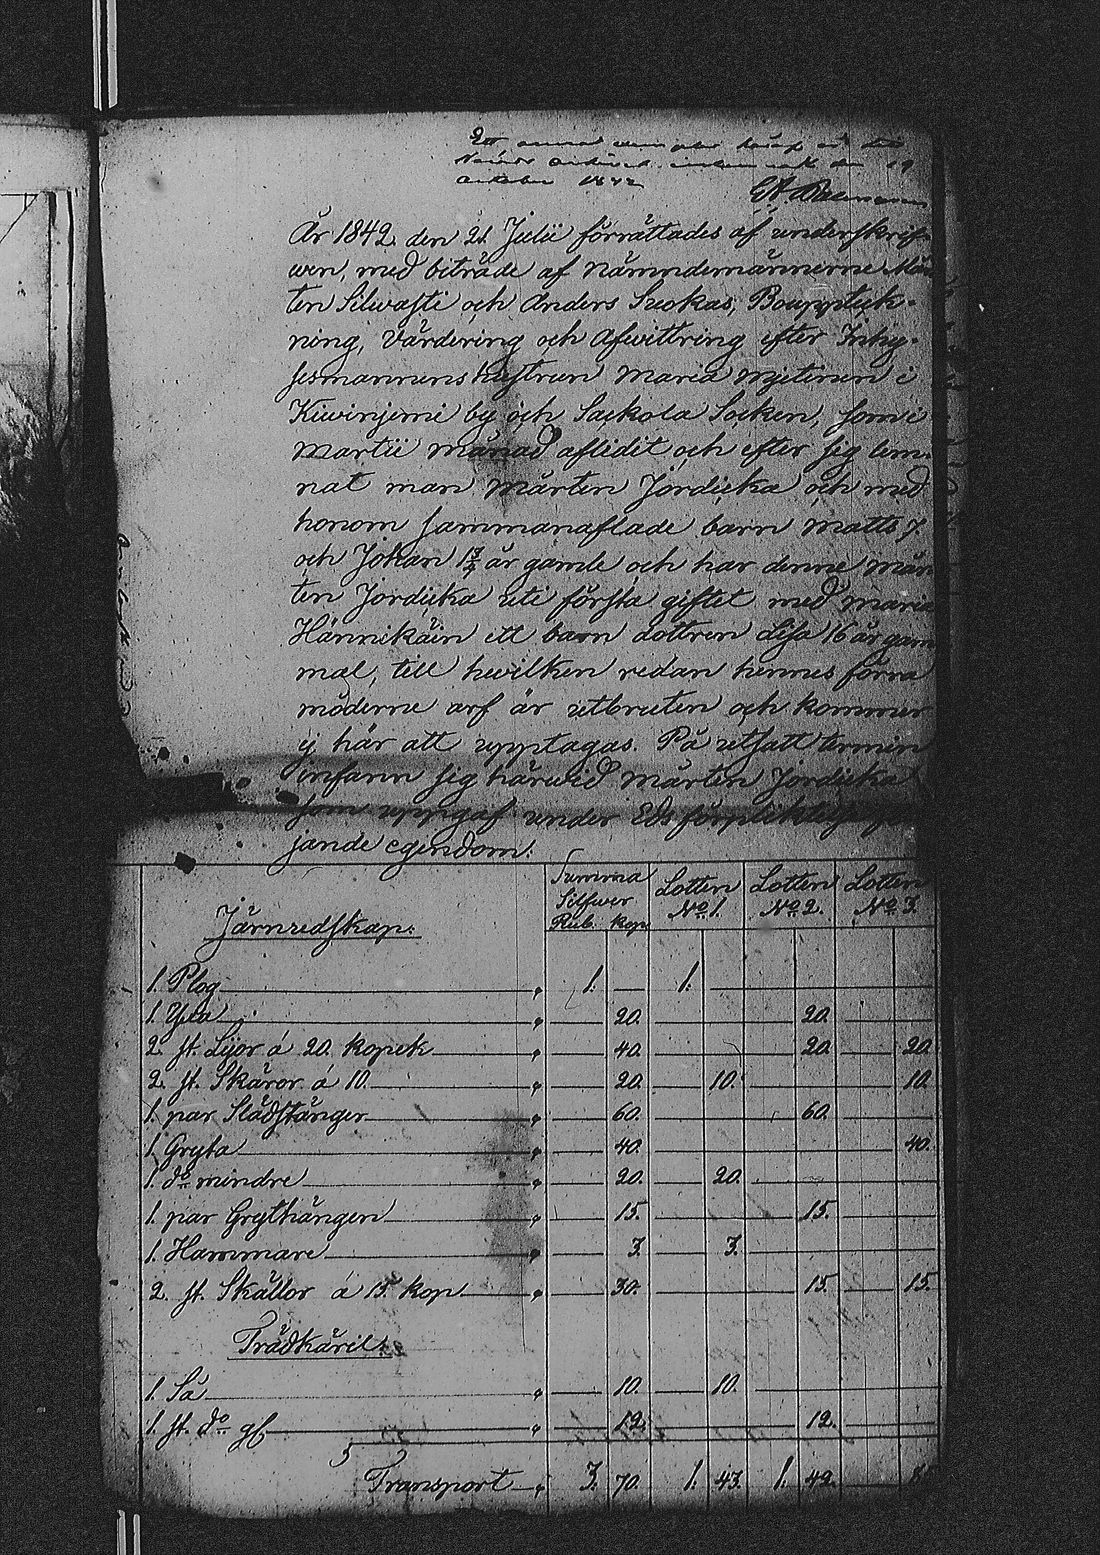 October 1842
År 1842 den 21. Julii förrättades af underskrif-
wen, med biträde af Nämndemännerne Mår
ten Silwasti och Anders Suokas, Bouppteck-
ning, Värdering och Afwittring efter Inhy-
sesmannens hustrun Maria Mjitinen i
Kiwinjemi by och Sackola Socken, som i
Martii månad aflidit och efter sig lem-
nat man Mårten Jordicka och med
honom sammanaflade barn Matts 7.
och Johan 1¾ år gamle och har denne Mår
ten Jordicka uti första giftet med Maria
Hännikäin ett barn dottren Lisa 16 år gam
mal, till hwilken redan hennes förra
möderne arf är utbruten och kommer
ej här att upptagas. På utsatt termin
infann sig härwid Mårten Jordicka
som uppgaf under Eds förpliktelse
jande egendom:
Järnredskap: Summa Silfwer Rub. kop. Lotten No 1. Lotten No 2. Lotten No 3.
1. Plog " 1. 1.
1. Yxa " 20. 20.
2. st. Lijor á 20. kopek " 40. 20. 20.
2. st. Skäror á 10. " 20. 10. 10.
1. par Slädstänger " 60. 60.
1. Gryta " 40. 40.
1. do mindre " 20. 20.
1. par Grythängen " 15. 15.
1. Hammare " 3. 3.
2. st. Skällor á 15. kop " 30. 15. 15.
Trädkäril:
1. Så " 10. 10.
1. st. do gl. " 12. 12.
Transport " 3. 70. 1. 43. 1. 42.